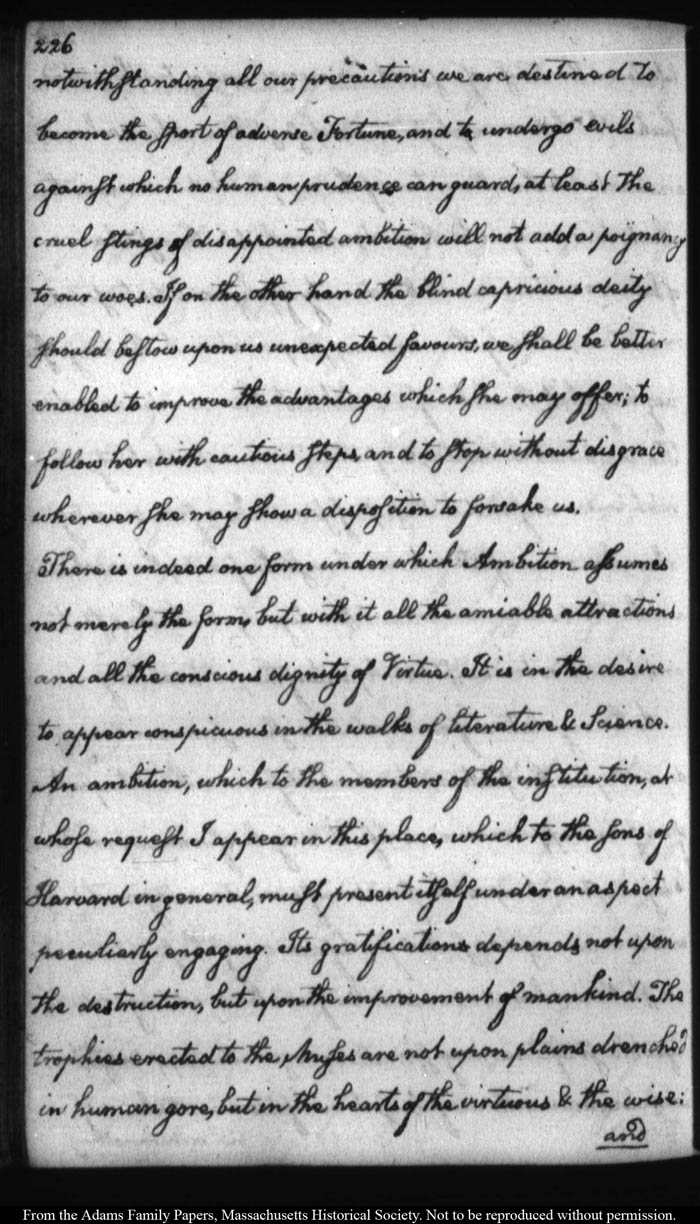 226
notwithstanding all our precautions we are destined to
become the sport of adverse Fortune, and to undergo evils
against which no human prudence can guard, at least the
cruel stings of disappointed ambition will not add a poignancy
to our woes. If on the other hand the blind capricious deity
should bestow upon us unexpected favours, we shall be better
enabled to improve the advantages which she may offer; to
follow her with cautious steps, and to stop without disgrace
wherever she may show a disposition to forsake us.
There is indeed one form under which Ambition assumes
not merely the form, but with it all the amiable attractions
and all the conscious dignity of Virtue. It is in the desire
to appear conspicuous in the walks of literature & Science.
An ambition, which to the members of the institution, at
whose request I appear in this place, which to the sons of
Harvard in general, must present itself under an aspect
peculiarly engaging. Its gratifications depends not upon
the destruction, but upon the improvement of mankind. The
trophies erected to the Muses are not upon plains drenched
in human gore, but in the hearts of the virtuous & the wise:
and
From the Adams Family Papers, Massachusetts Historical Society. Not to be reproduced without permission.